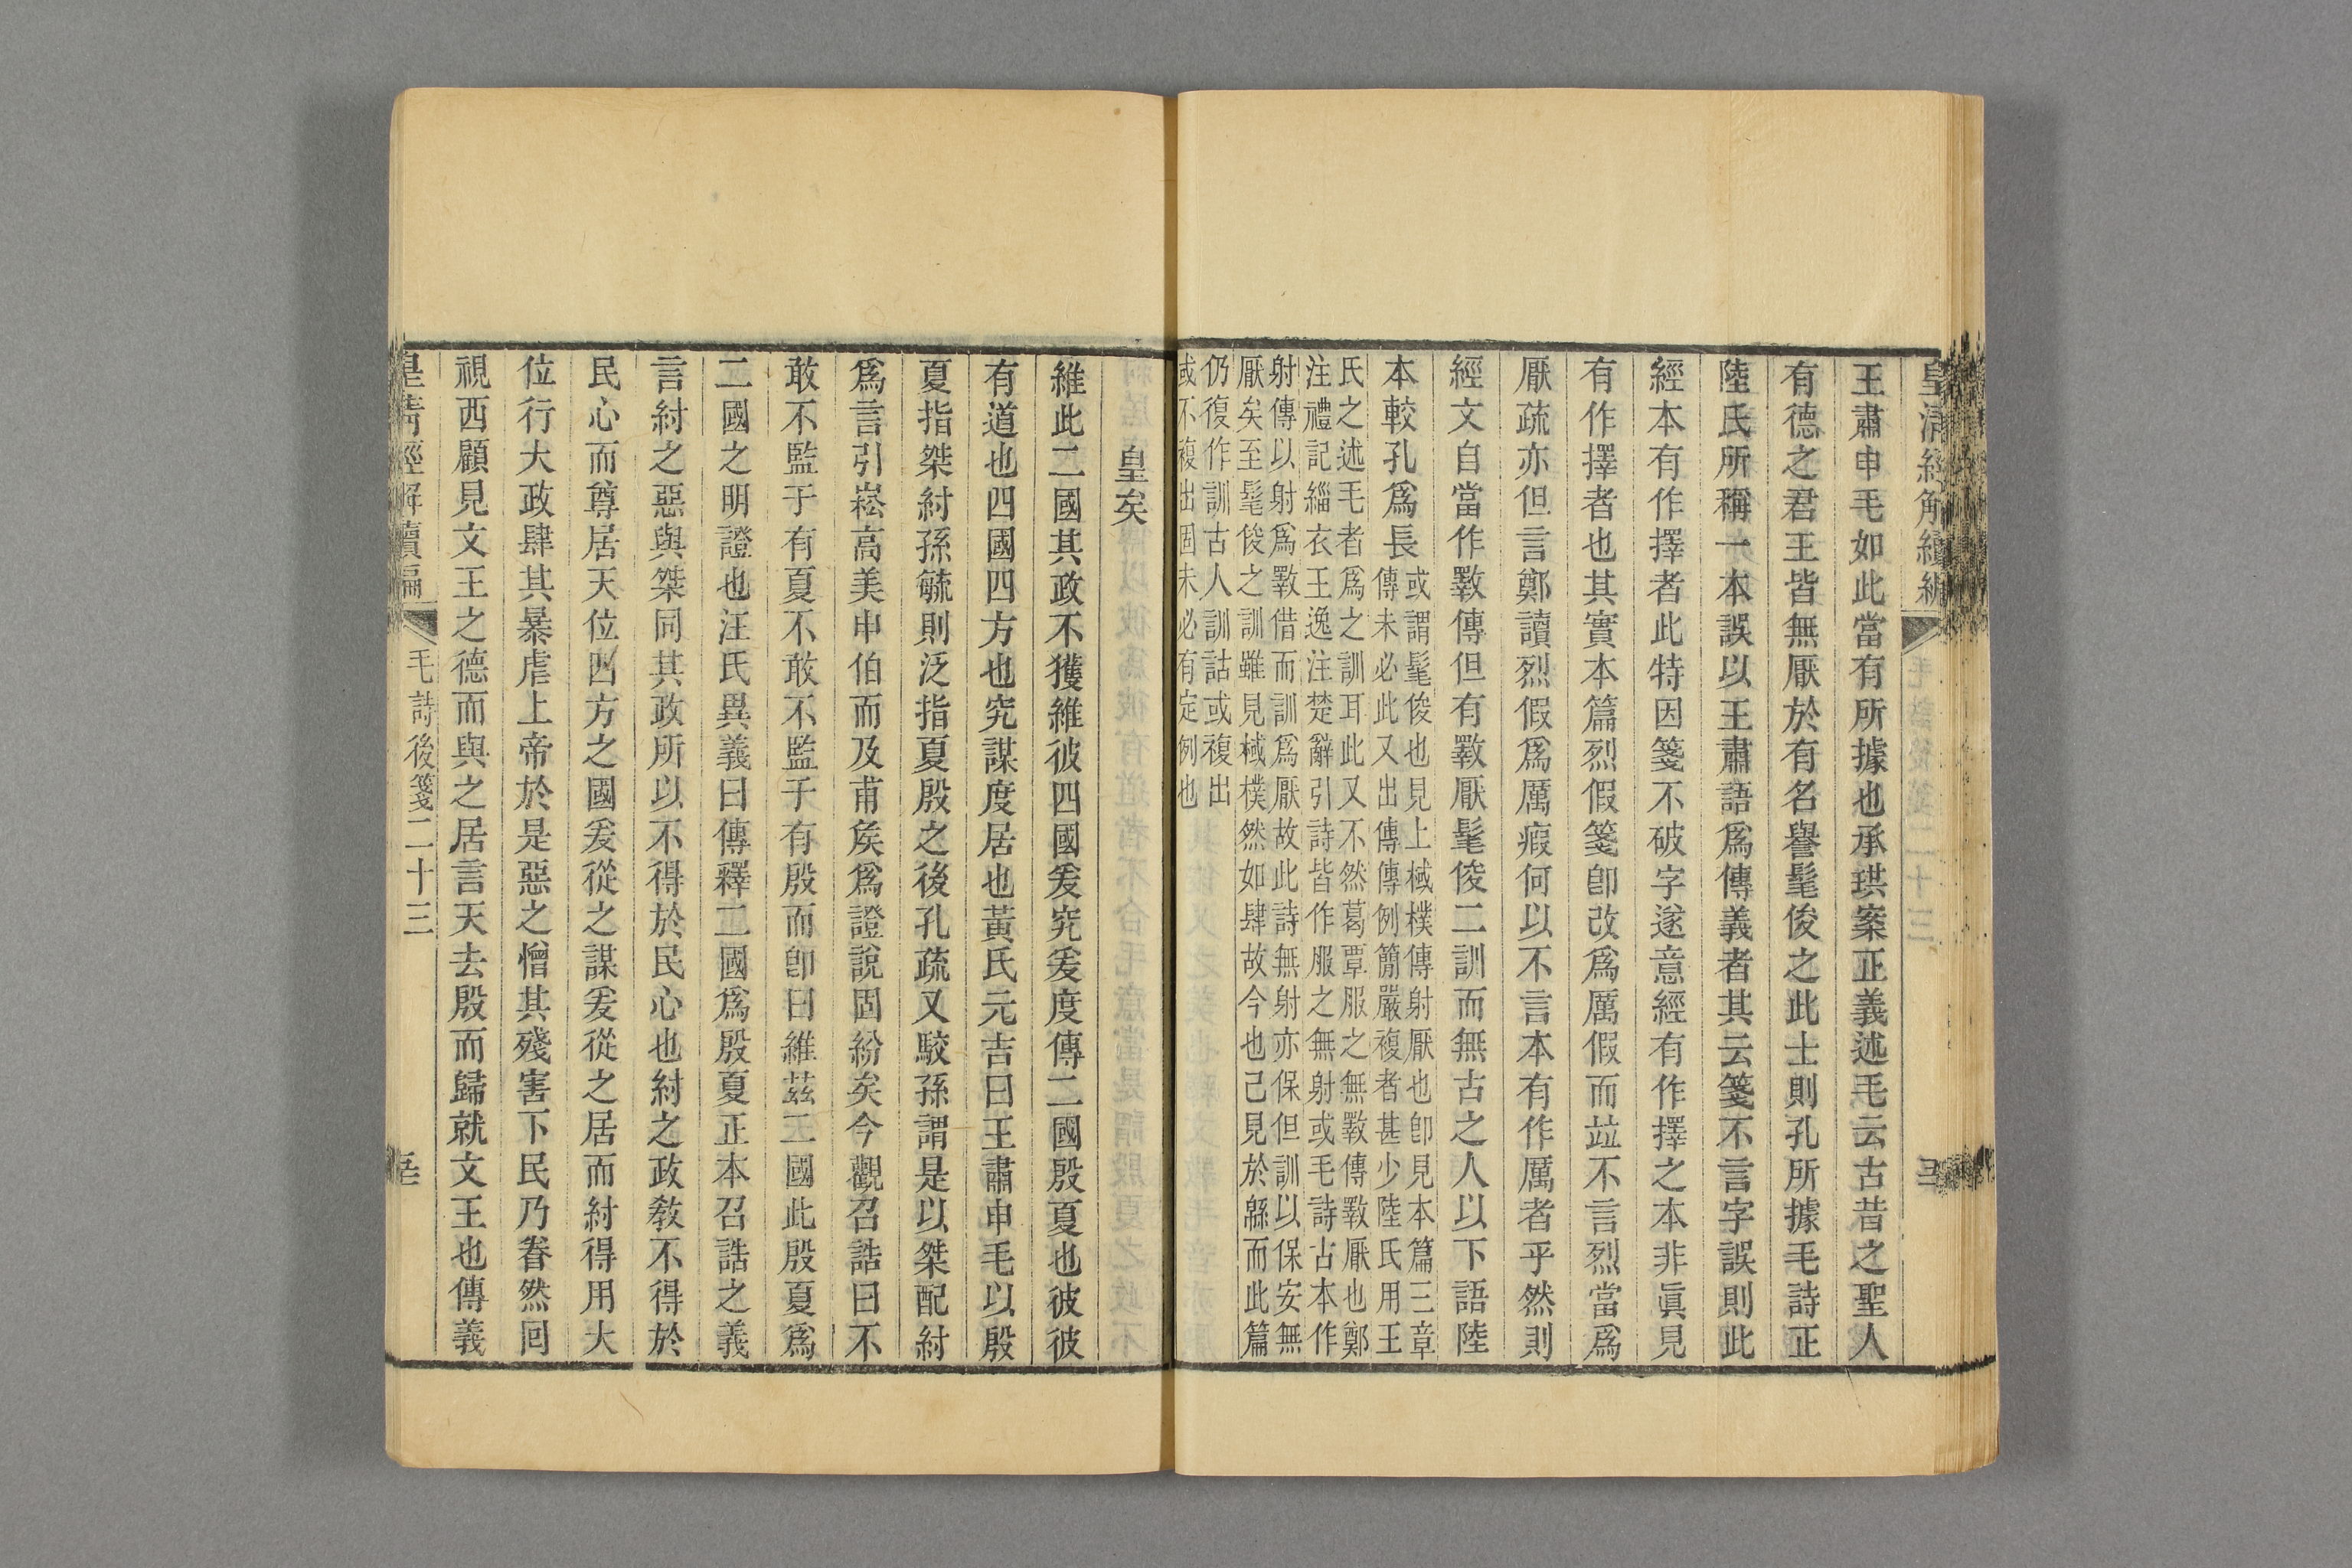 皇清經解續編
王肅申毛如此當有所據也承珙案正義述毛云古昔之聖人
有德之君王皆無厭於有名譽髦俊之此士則孔所據毛詩正
陸氏所稱一本誤以王肅語爲傳義者其云箋不言字誤則此
經本有作擇者此特因箋不破字遂意經有作擇之本非眞見
有作擇者也其實本篇烈假箋卽改爲厲假而竝不言烈當爲
厭疏亦但言鄭讀烈假爲厲瘕何以不言本有作厲者乎然則
經文自當作斁傳但有斁厭髦俊二訓而無古之人以下語陸
本較孔爲長
或謂髦俊也見上棫樸傳射厭也卽見本篇三章
傳未必此又出傳傳例簡嚴複者甚少陸氏用王
氏之述毛者爲之訓耳此又不然葛覃服之無斁傳斁厭也鄭
注禮記緇衣王逸注楚辭引詩皆作服之無射或毛詩古本作
射傳以射爲斁借而訓爲厭故此詩無射亦保但訓以保安無
厭矣至髦俊之訓雖見棫樸然如肆故今也己見於緜而此篇
仍復作訓古人訓詁或複出
或不複出固未必有定例也
皇矣
維此二國其政不獲維彼四國爰究爰度傳二國殷夏也彼彼
有道也四國四方也究謀度居也黃氏元吉曰王肅申毛以殷
夏指桀紂孫毓則泛指夏殷之後孔疏又駮孫謂是以桀配紂
爲言引崧高美申伯而及甫矦爲證說固紛矣今觀召誥曰不
敢不監于有夏不敢不監于有殷而卽曰維茲二國此殷夏爲
二國之明證也汪氏異義曰傳釋二國爲殷夏正本召誥之義
言紂之惡與桀同其政所以不得於民心也紂之政敎不得於
民心而尊居天位四方之國爰從之謀爰從之居而紂得用大
位行大政肆其暴虐上帝於是惡之憎其殘害下民乃眷然囘
視西顧見文王之德而與之居言天去殷而歸就文王也傳義
皇清經解續編
毛詩後箋二十三